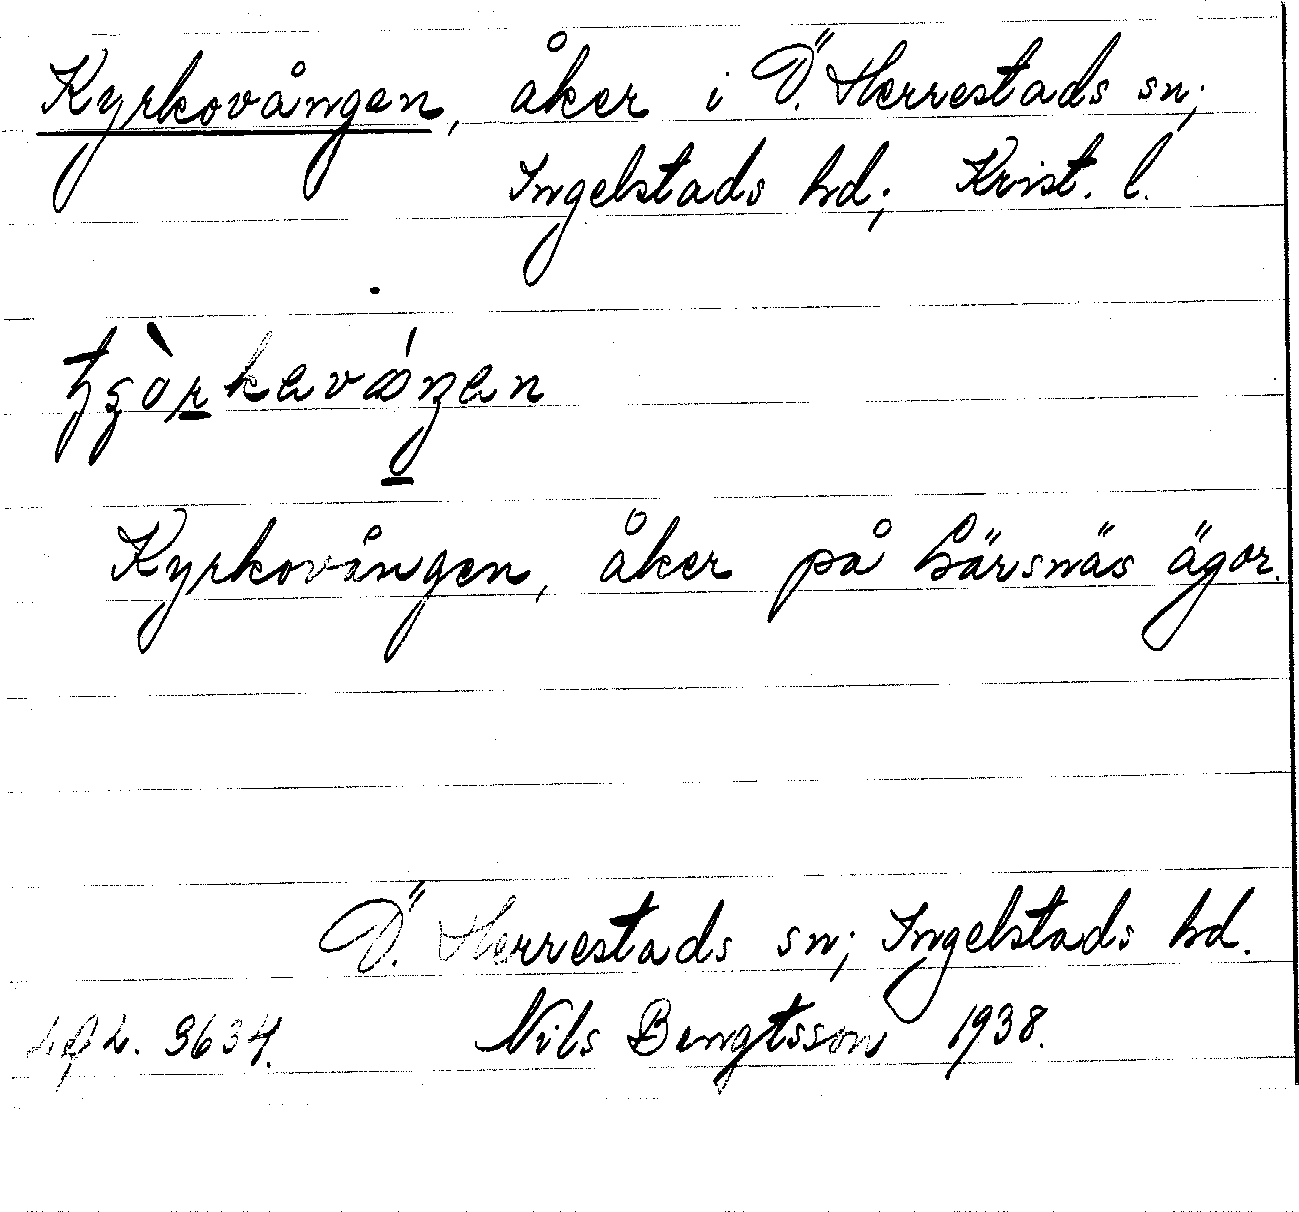 Kyrkovången, åker i Ö. Herrestads sn;
Ingelstads hd; Krist. l.
Kyrkovången, åker på Gärsnäs ägor.
Ö. Herrestads sn; Ingelstads hd.
3634. Nils Bengtsson 1938.